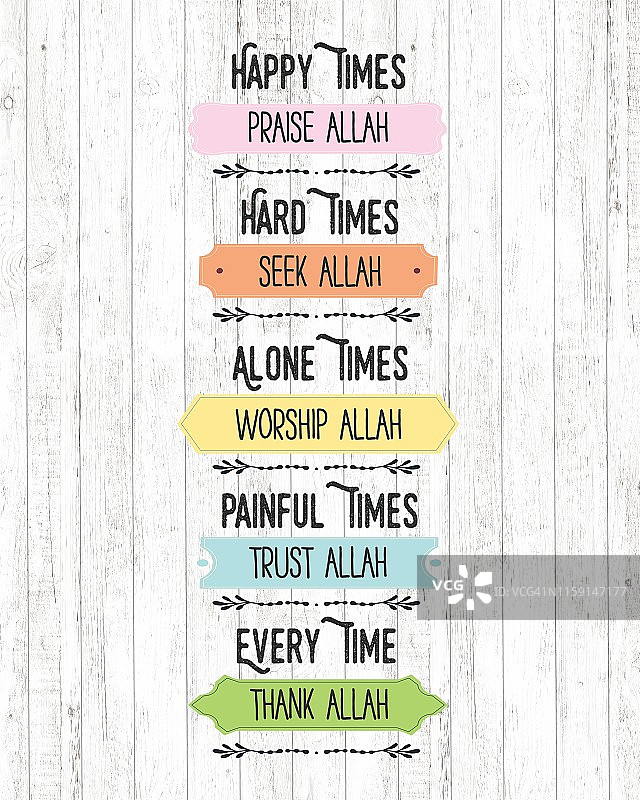 HAPPY TIMES
PRAISE ALLAH
HARD TIMES
SEEK ALLAH
ALONE TIMES
WORSHIP ALLAH
PAINFUL TIMES
TRUST ALLAH
VCG
ID: VCG41N1159147177
EVERY TIME
THANK ALLAH